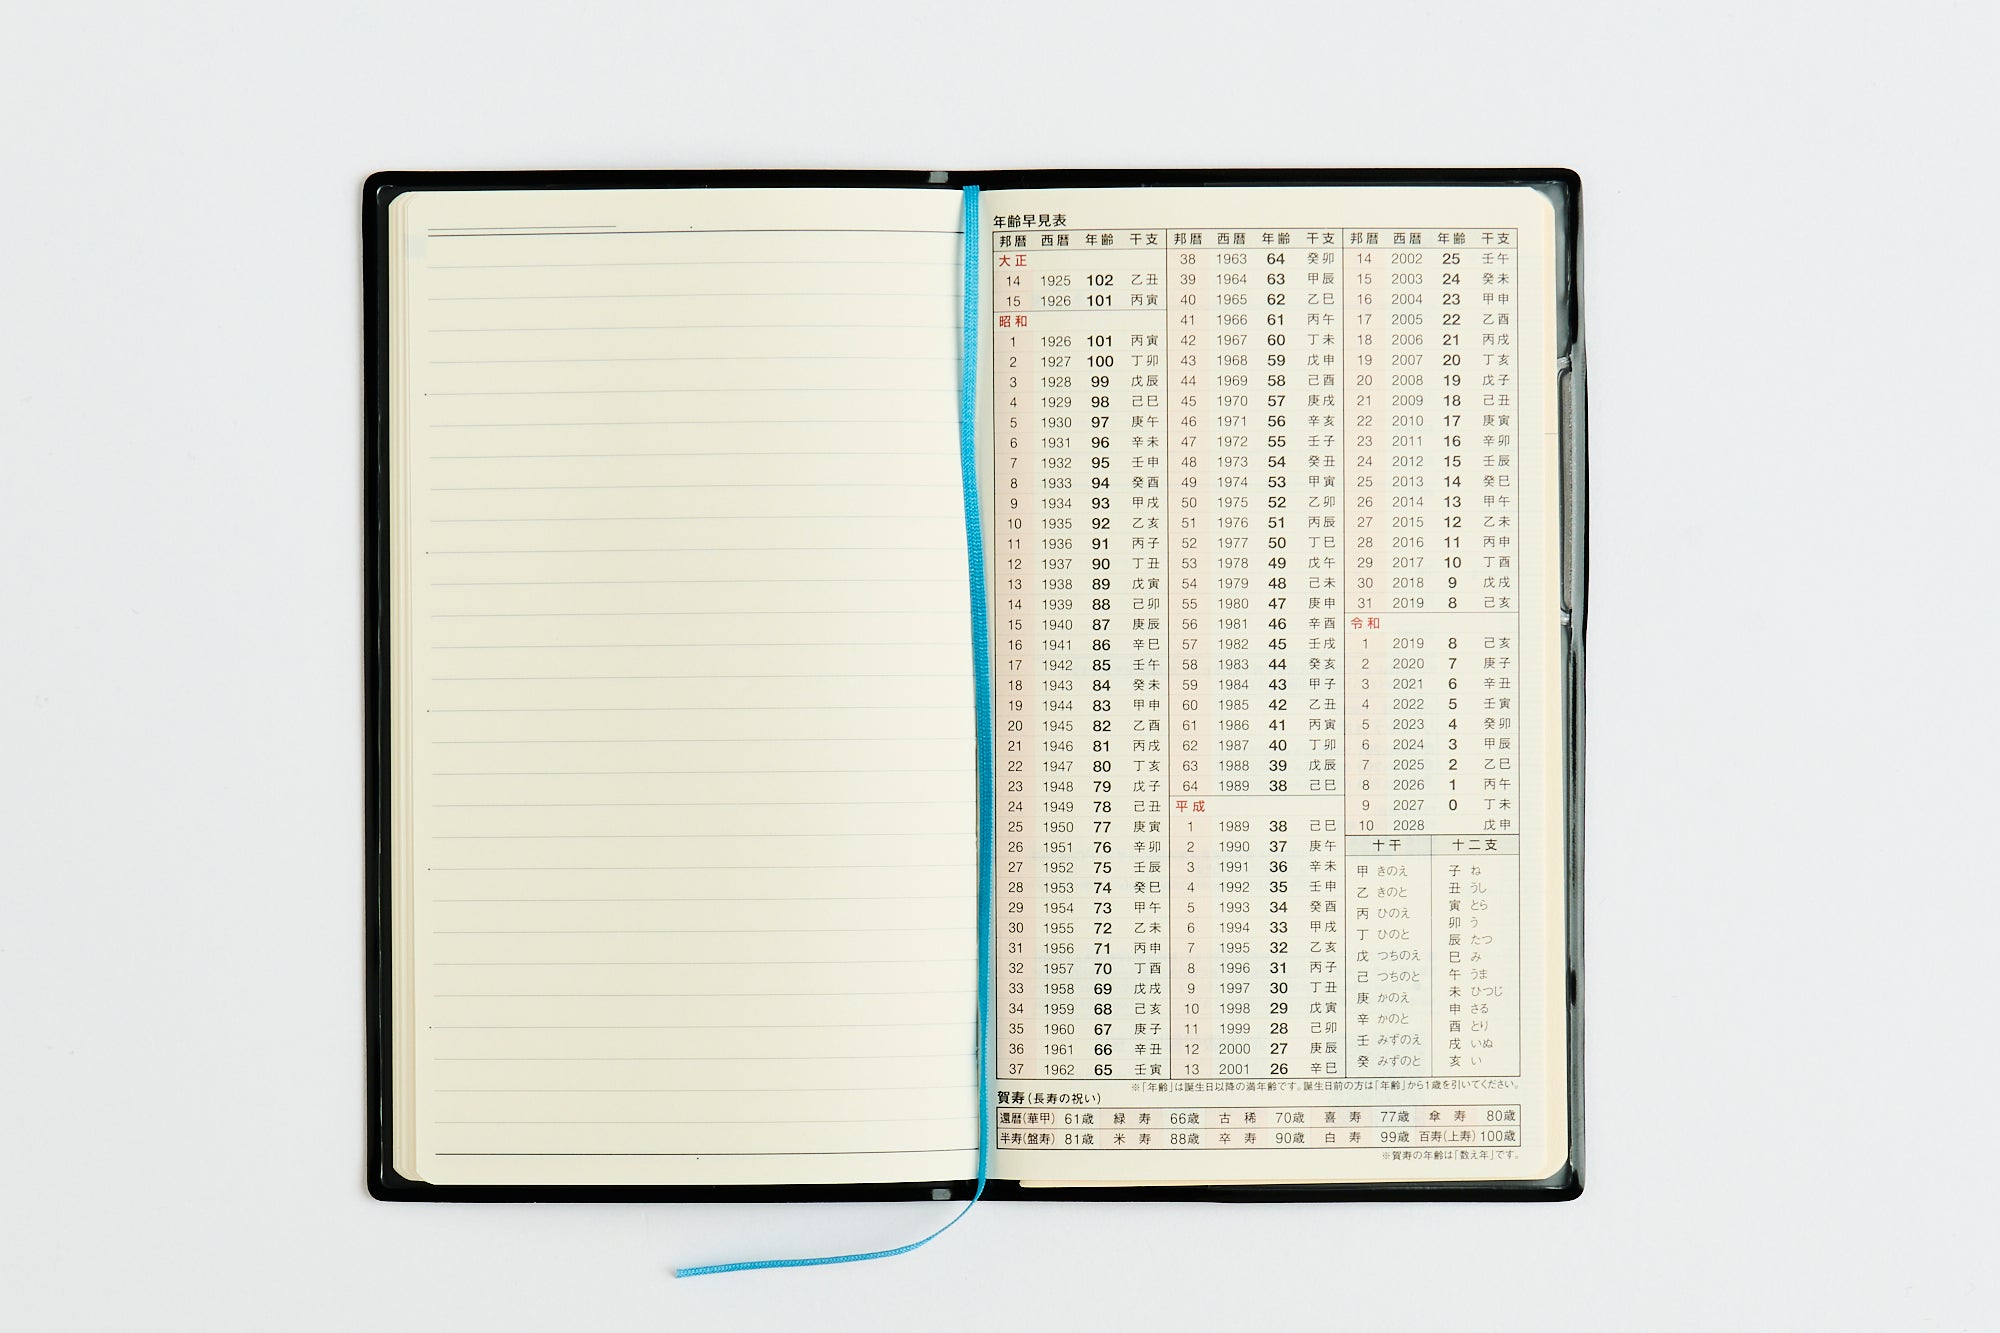 年齢早見表
邦暦 西暦 年齢 干支
大正
14 1925 102 乙丑
15 1926 101 丙寅
昭和
1 1926 101 丙寅
2 1927 100 丁卯
3 1928 99 戊辰
4 1929 98 己巳
5 1930 97 庚午
6 1931 96 辛未
7 1932 95 壬申
8 1933 94 癸酉
9 1934 93 甲戌
10 1935 92 乙亥
11 1936 91 丙子
12 1937 90 丁丑
13 1938 89 戊寅
14 1939 88 己卯
15 1940 87 庚辰
16 1941 86 辛巳
17 1942 85 壬午
18 1943 84 癸未
19 1944 83 甲申
20 1945 82 乙酉
21 1946 81 丙戌
22 1947 80 丁亥
23 1948 79 戊子
24 1949 78 己丑
25 1950 77 庚寅
26 1951 76 辛卯
27 1952 75 壬辰
28 1953 74 癸巳
29 1954 73 甲午
30 1955 72 乙未
31 1956 71 丙申
32 1957 70 丁酉
33 1958 69 戊戌
34 1959 68 己亥
35 1960 67 庚子
36 1961 66 辛丑
37 1962 65 壬寅
邦暦 西暦 年齢 干支
38 1963 64 癸卯
39 1964 63 甲辰
40 1965 62 乙巳
41 1966 61 丙午
42 1967 60 丁未
43 1968 59 戊申
44 1969 58 己酉
45 1970 57 庚戌
46 1971 56 辛亥
47 1972 55 壬子
48 1973 54 癸丑
49 1974 53 甲寅
50 1975 52 乙卯
51 1976 51 丙辰
52 1977 50 丁巳
53 1978 49 戊午
54 1979 48 己未
55 1980 47 庚申
56 1981 46 辛酉
57 1982 45 壬戌
58 1983 44 癸亥
59 1984 43 甲子
60 1985 42 乙丑
61 1986 41 丙寅
62 1987 40 丁卯
63 1988 39 戊辰
64 1989 38 己巳
平成
1 1989 38 己巳
2 1990 37 庚午
3 1991 36 辛未
4 1992 35 壬申
5 1993 34 癸酉
6 1994 33 甲戌
7 1995 32 乙亥
8 1996 31 丙子
9 1997 30 丁丑
10 1998 29 戊寅
11 1999 28 己卯
12 2000 27 庚辰
13 2001 26 辛巳
邦暦 西暦 年齢 干支
14 2002 25 壬午
15 2003 24 癸未
16 2004 23 甲申
17 2005 22 乙酉
18 2006 21 丙戌
19 2007 20 丁亥
20 2008 19 戊子
21 2009 18 己丑
22 2010 17 庚寅
23 2011 16 辛卯
24 2012 15 壬辰
25 2013 14 癸巳
26 2014 13 甲午
27 2015 12 乙未
28 2016 11 丙申
29 2017 10 丁酉
30 2018 9 戊戌
31 2019 8 己亥
令和
1 2019 8 己亥
2 2020 7 庚子
3 2021 6 辛丑
4 2022 5 壬寅
5 2023 4 癸卯
6 2024 3 甲辰
7 2025 2 乙巳
8 2026 1 丙午
9 2027 0 丁未
10 2028 戊申
十干
甲 きのえ
乙 きのと
丙 ひのえ
丁 ひのと
戊 つちのえ
己 つちのと
庚 かのえ
辛 かのと
壬 みずのえ
癸 みずのと
十二支
子 ね
丑 うし
寅 とら
卯 う
辰 たつ
巳 み
午 うま
未 ひつじ
申 さる
酉 とり
戌 いぬ
亥 い
※「年齢」は誕生日以降の満年齢です。誕生日前の方は「年齢」から1歳を引いてください。
賀寿(長寿の祝い)
還暦(華甲) 61歳 緑寿 66歳 古稀 70歳 喜寿 77歳 傘寿 80歳
半寿(盤寿) 81歳 米寿 88歳 卒寿 90歳 白寿 99歳 百寿(上寿) 100歳
※賀寿の年齢は「数え年」です。